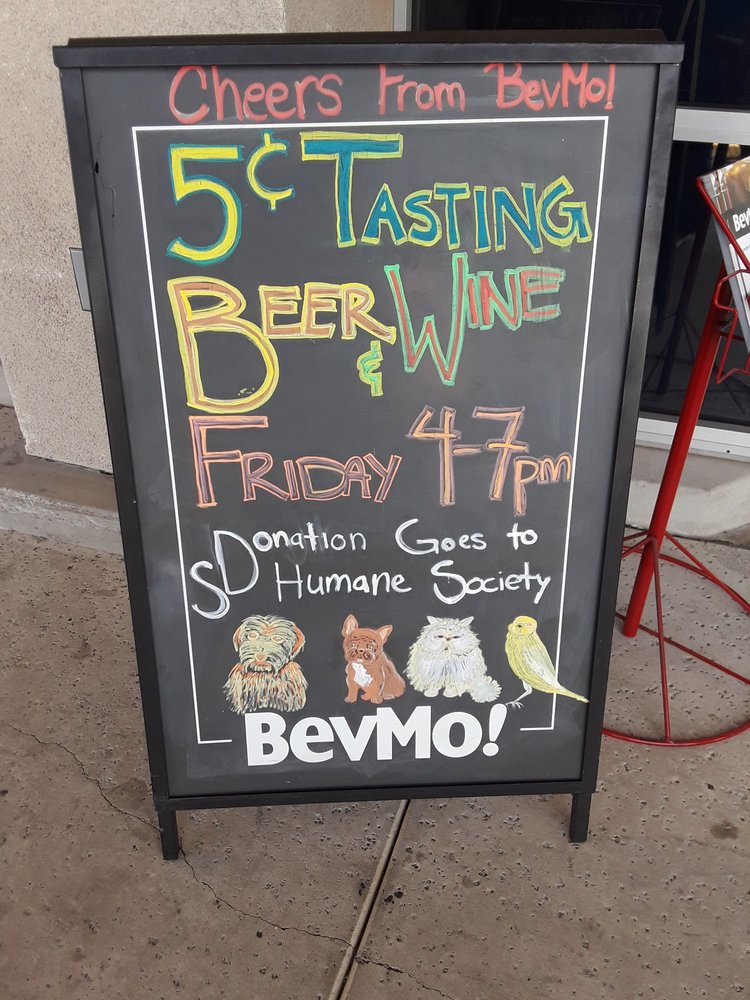 Cheers From BevMo!
5¢ TASTING
BEER & WINE
FRIDAY 4-7pm
Donation Goes to
SD Humane Society
BevMo!
Bev